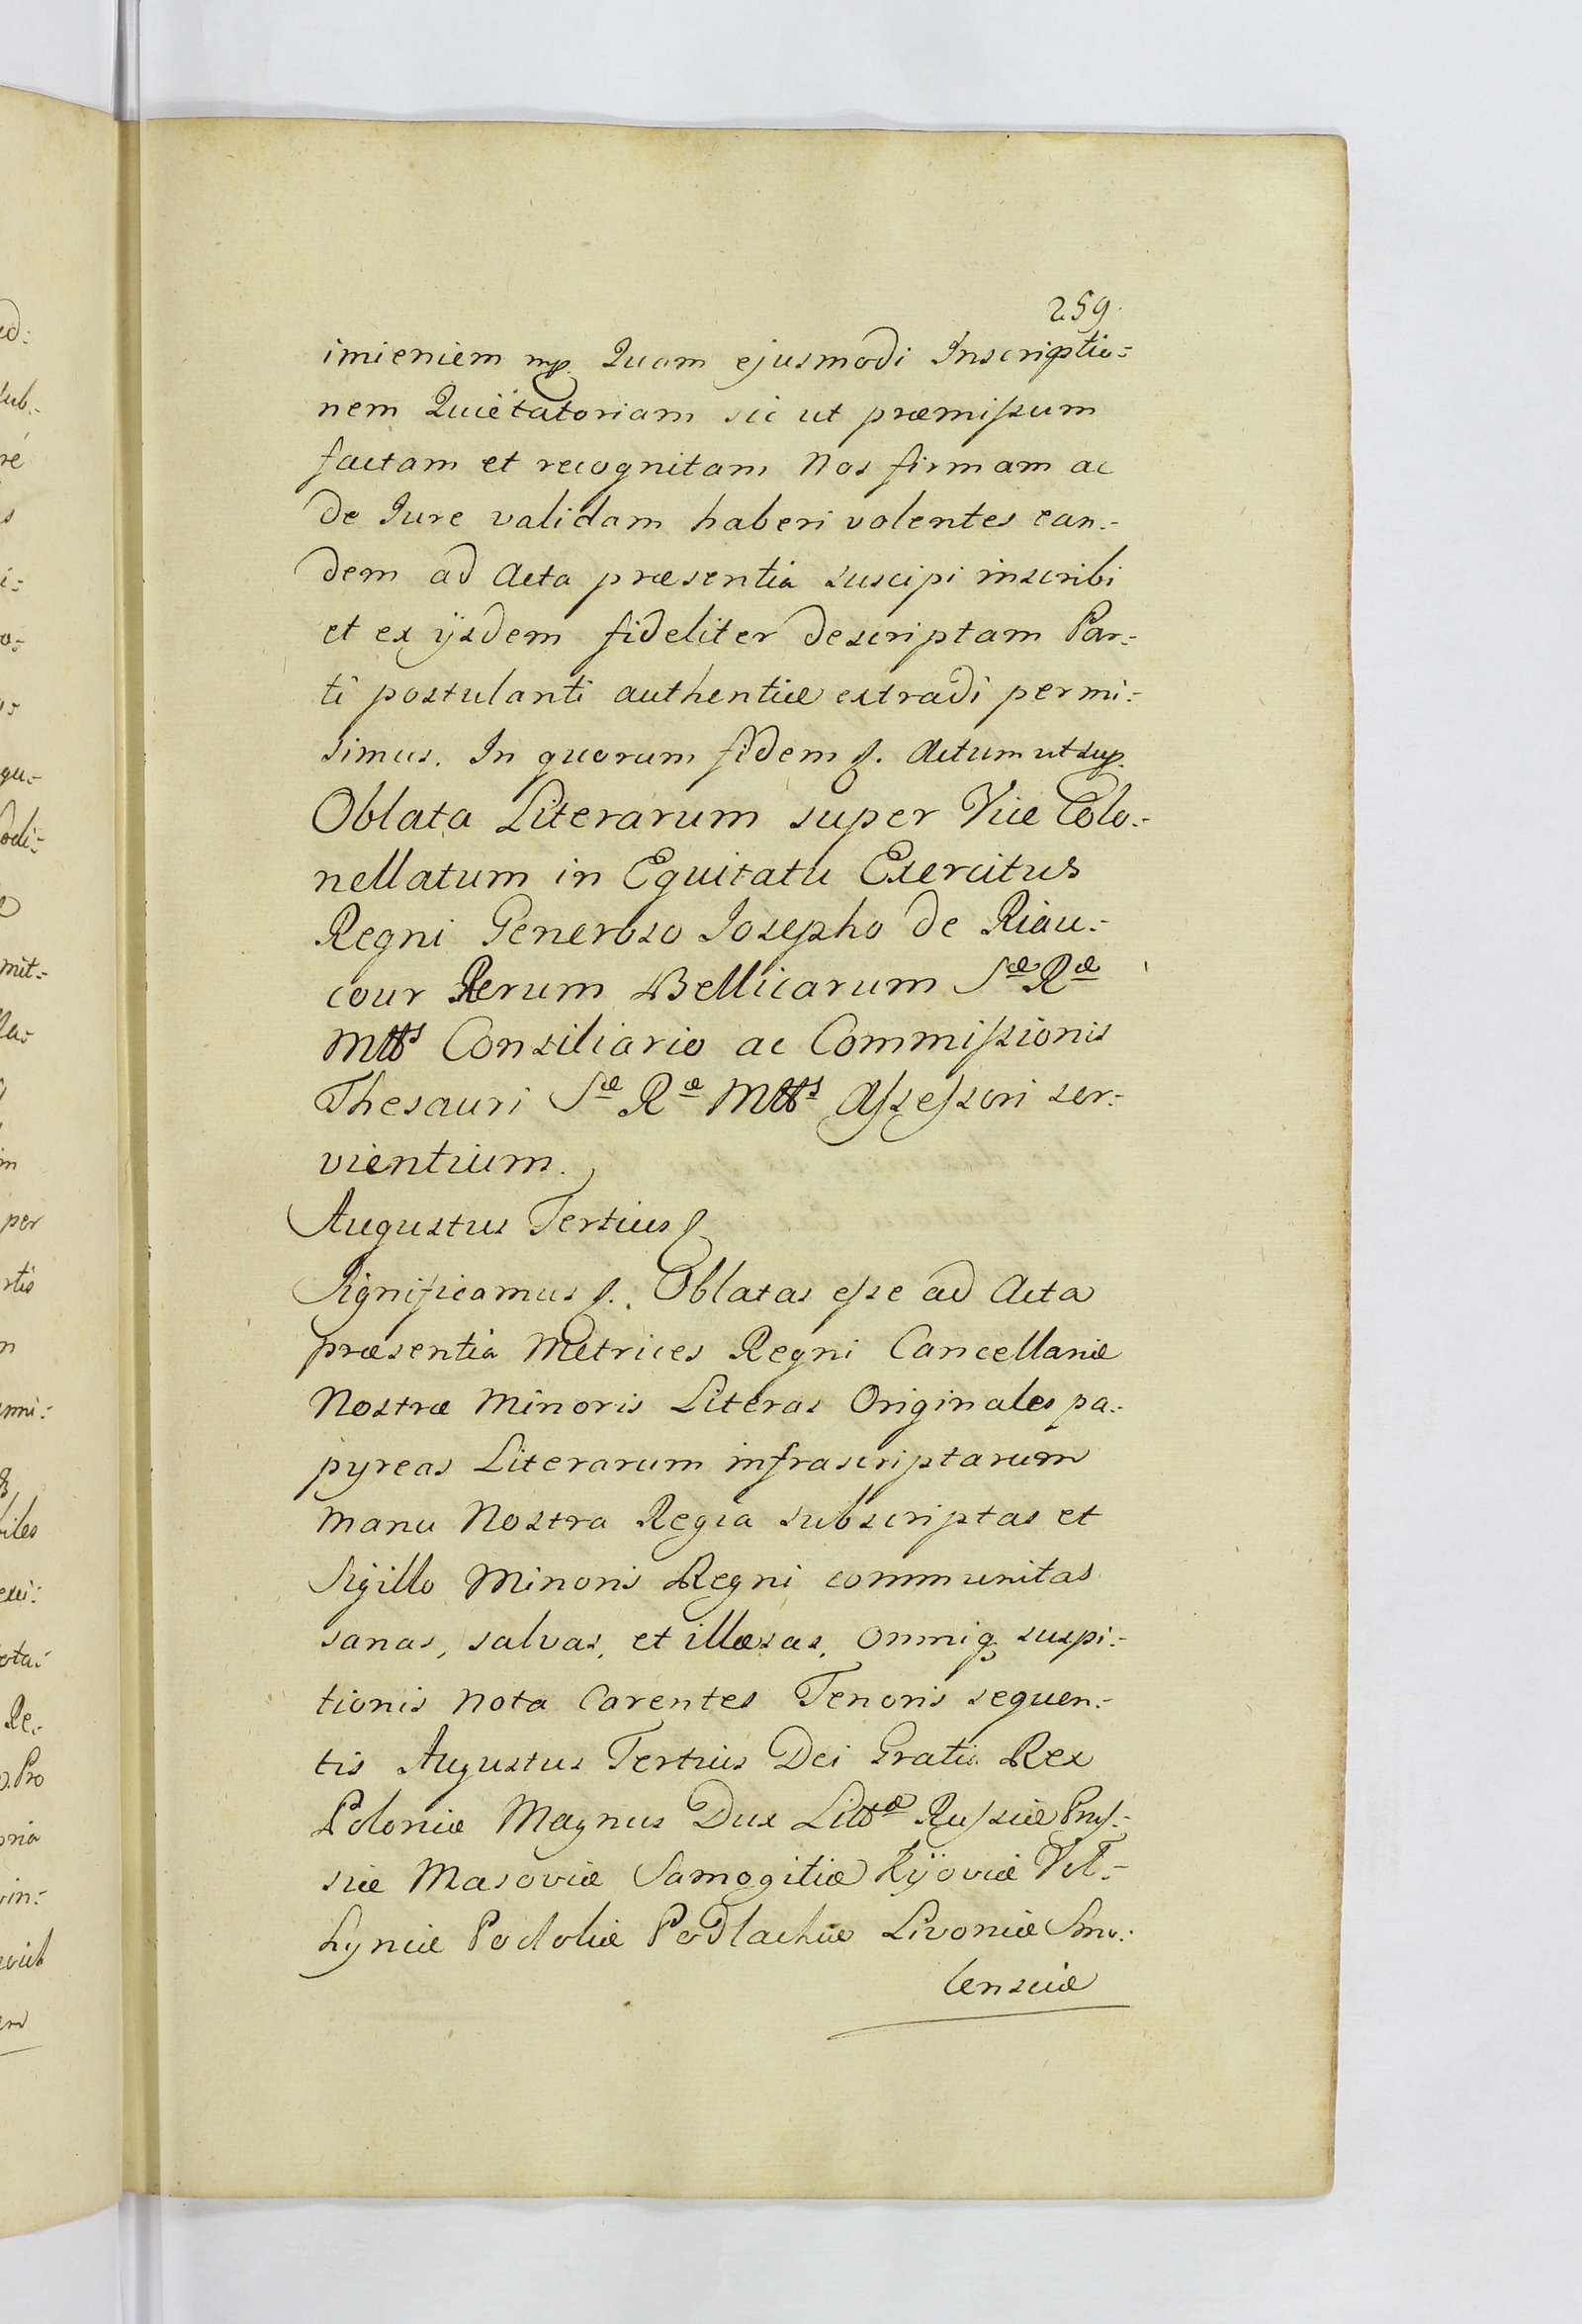 259.
imieniem mp. Quam ejusmodi Inscriptio:
nem Quietatoriam sic ut præmissum
factam et recognitam Nos firmam ac
de Iure validam haberi volentes ean:
dem ad Acta præsentia suscipi inscribi
et ex ijsdem fideliter descriptam Par:
ti postulanti authenticè extradi permi:
simus. In quorum fidem &. Actum ut sup.
Oblata Literarum super Vice Colo:
nellatum in Equitatu Exercitus
Regni Generoso Iosepho de Riau:
cour Rerum Bellicarum Sæ Ræ
Mttis Consiliario ac Commissionis
Thesauri Sæ Ræ Mttis Assessori ser:
vientium.
Augustus Tertius &
Significamus &. Oblatas esse ad Acta
præsentia Metrices Regni Cancellariæ
Nostræ Minoris Literas Originales pa:
pyreas Literarum infrascriptarum
manu Nostra Regia subscriptas et
Sigillo Minoris Regni communitas
sanas, salvas, et illæsas, omniq; suspi:
tionis nota carentes Tenoris sequen:
tis Augustus Tertius Dei Gratia Rex
Poloniæ Magnus Dux Littæ Russiæ Prus:
siæ Masoviæ Samogitiæ Kijoviæ Vol:
hyniæ Podoliæ Podlachiæ Livoniæ Smo:
lensciæ